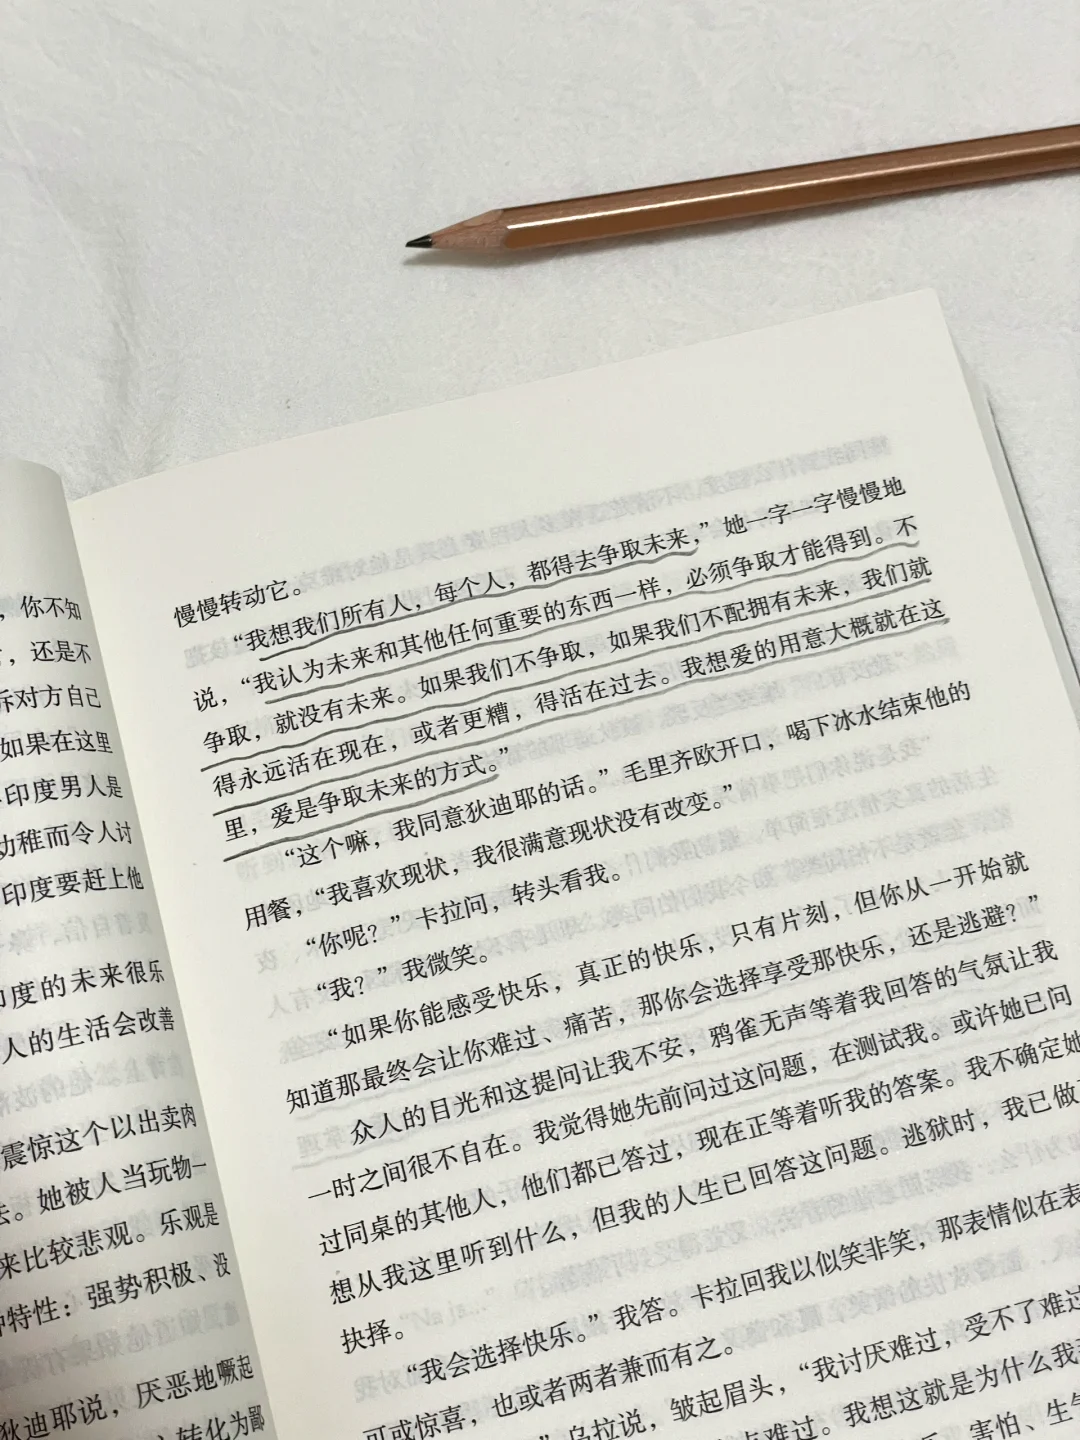 ，你不知
，还是不
诉对方自己
如果在这里
印度男人是
幼稚而令人讨
印度要赶上他
印度的未来很乐
人的生活会改善
震惊这个以出卖肉
去。她被人当玩物一
来比较悲观。乐观是
种特性：强势积极、没
狄迪耶说，厌恶地噘起
转化为鄙
慢慢转动它。
“我想我们所有人，每个人，都得去争取未来，”她一字一字慢慢地
说，“我认为未来和其他任何重要的东西一样，必须争取才能得到。不
争取，就没有未来。如果我们不争取，如果我们不配拥有未来，我们就
得永远活在现在，或者更糟，得活在过去。我想爱的用意大概就在这
里，爱是争取未来的方式。”
“这个嘛，我同意狄迪耶的话。”毛里齐欧开口，喝下冰水结束他的
用餐，“我喜欢现状，我很满意现状没有改变。”
“你呢？”卡拉问，转头看我。
“我？”我微笑。
“如果你能感受快乐，真正的快乐，只有片刻，但你从一开始就
知道那最终会让你难过、痛苦，那你会选择享受那快乐，还是逃避？”
众人的目光和这提问让我不安，鸦雀无声等着我回答的气氛让我
一时之间很不自在。我觉得她先前问过这问题，在测试我。或许她已问
过同桌的其他人，他们都已答过，现在正等着听我的答案。我不确定她
想从我这里听到什么，但我的人生已回答这问题。逃狱时，我已做了
抉择。
“我会选择快乐。”我答。卡拉回我以似笑非笑，那表情似在表
可或惊喜，也或者两者兼而有之。
乌拉说，皱起眉头，“我讨厌难过，受不了难过
难过。我想这就是为什么我
害怕、生气